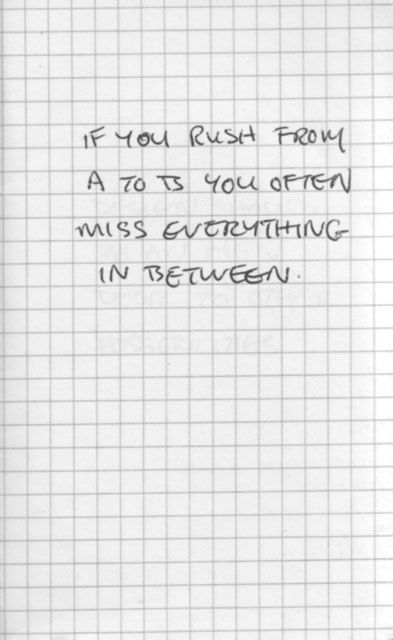 IF YOU RUSH FROM
A TO B YOU OFTEN
MISS EVERYTHING
IN BETWEEN.
POSSIBILITIES